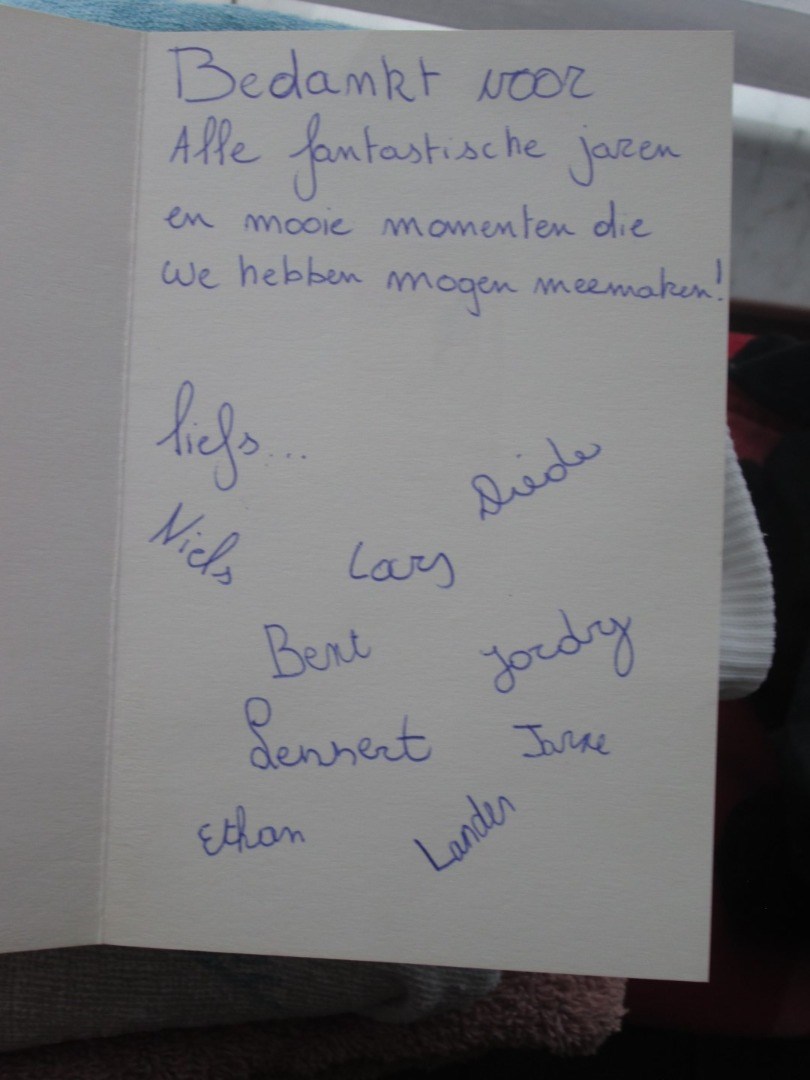 Bedankt voor
Alle fantastische jaren
en mooie momenten die
we hebben mogen meemaken!
liefs...
Diede
Niels
Lars
Bent
Jordy
Lennert
Jarne
Ethan
Lander